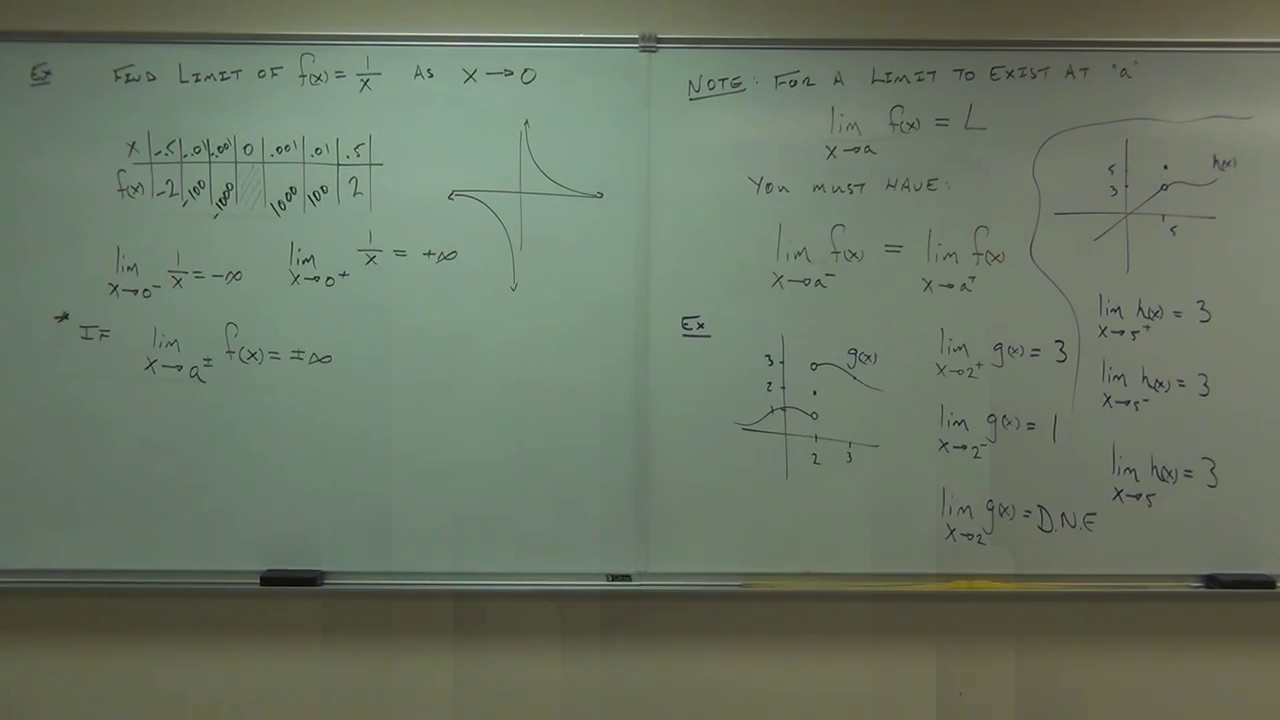 Ex FIND LIMIT OF f(x) = 1/x AS x → 0
x | -.5 | -.01 | -.001 | 0 | .001 | .01 | .5
f(x) | -2 | -100 | -1000 | | 1000 | 100 | 2
lim x→0⁻ 1/x = -∞ lim x→0⁺ 1/x = +∞
* IF lim x→a± f(x) = ±∞
NOTE: FOR A LIMIT TO EXIST AT "a"
lim x→a f(x) = L
YOU MUST HAVE:
lim x→a⁻ f(x) = lim x→a⁺ f(x)
Ex
3
2
1
g(x)
2 3
lim x→2⁺ g(x) = 3
lim x→2⁻ g(x) = 1
lim x→2 g(x) = D.N.E
5
3
h(x)
5
lim x→5⁺ h(x) = 3
lim x→5⁻ h(x) = 3
lim x→5 h(x) = 3